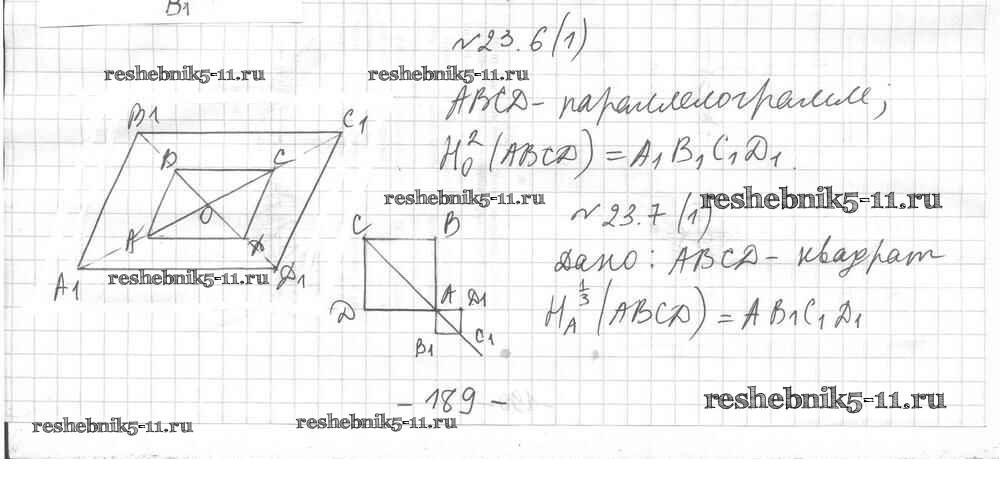 B1
N23.6(1)
reshebnik5-11.ru
reshebnik5-11.ru
ABCD - параллелограмм;
B1
C1
B
C
H_O^2 (ABCD) = A1B1C1D1.
reshebnik5-11.ru
reshebnik5-11.ru
O
N23.7(1)
A
D
C
B
Дано: ABCD - квадрат
A1
reshebnik5-11.ru
D1
D
A
D1
H_A^{1/3} (ABCD) = AB1C1D1
B1
C1
- 189 -
reshebnik5-11.ru
reshebnik5-11.ru
reshebnik5-11.ru